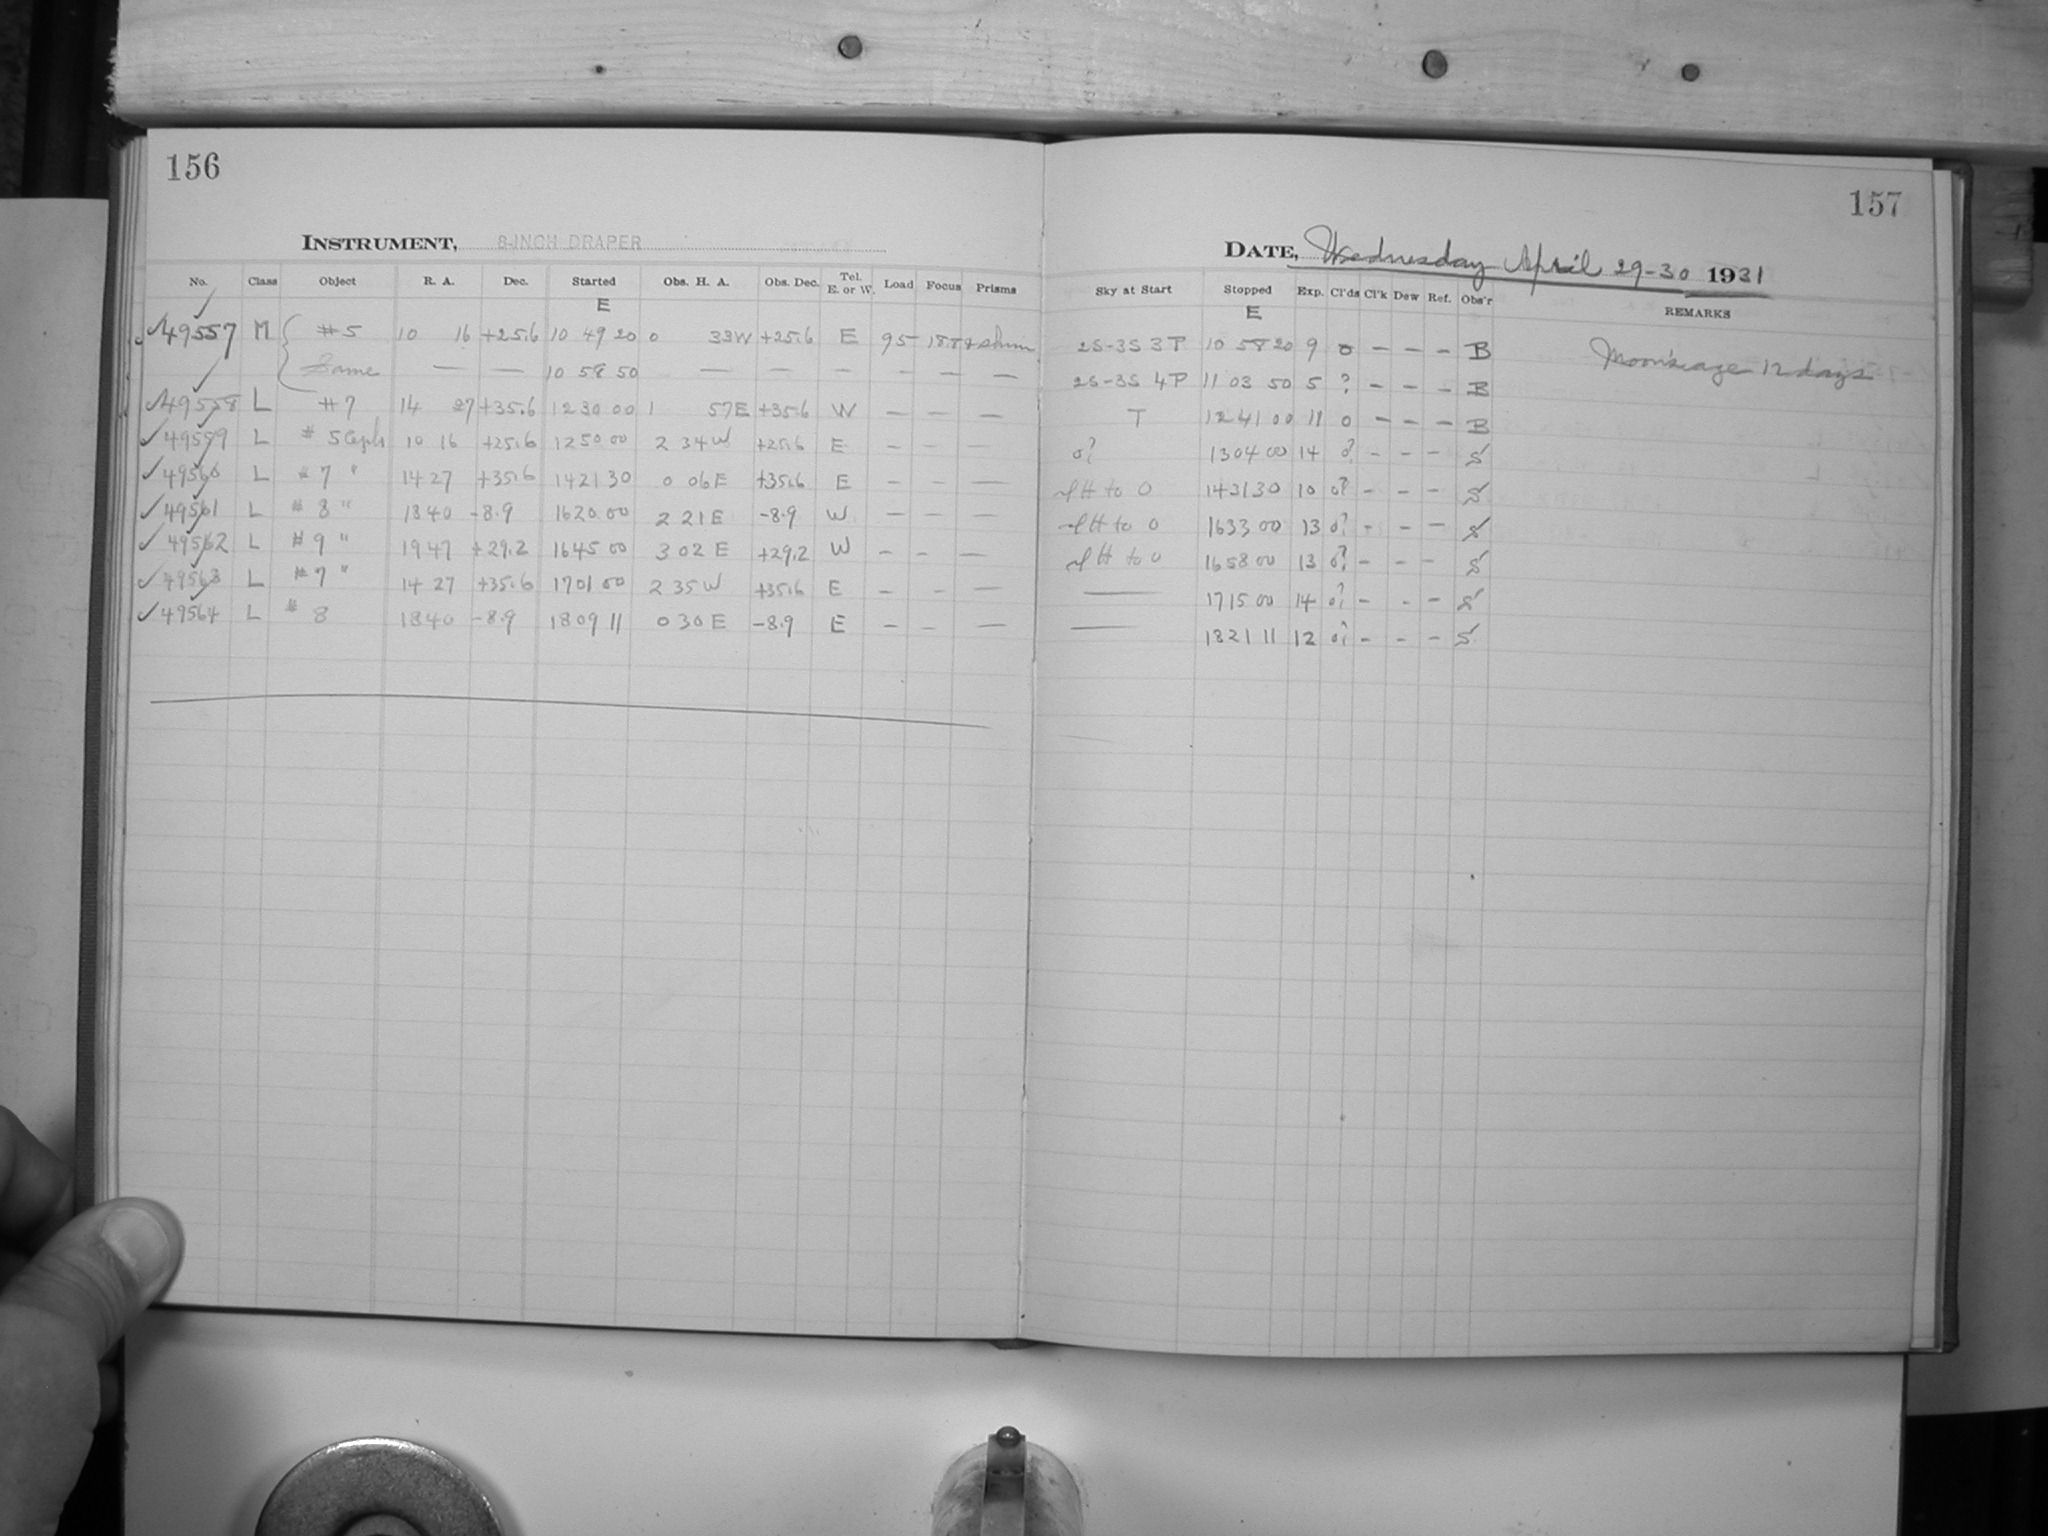 156
157
INSTRUMENT, 8-INCH DRAPER
DATE, Wednesday April 29-30 1931
No. Class Object R. A. Dec. Started Obs. H. A. Obs. Dec. Tel. E. or W. Load Focus Prisms Sky at Start Stopped Exp. Cl'ds Cl'k Dew Ref. Obs'r REMARKS
E E
49557 M #5 10 16 +25.6 10 49 20 0 33W +25.6 E 95 2S-3S 3P 10 58 20 9 0 – – – B Moon's age 12 days
Same — — 10 58 50 — — – – — — 2S-3S 4P 11 03 50 5 ? – – – B
49558 L #7 14 27 +35.6 12 30 00 1 57E +35.6 W – – — T 12 41 00 11 0 – – – B
49559 L #5 Ceph 10 16 +25.6 12 50 00 2 34W +25.6 E – – — 0? 13 04 00 14 0? – – – S
49560 L #7 " 14 27 +35.6 14 21 30 0 06E +35.6 E – – — H to 0 14 31 30 10 0? – – – S
49561 L #8 " 18 40 -8.9 16 20 00 2 21E -8.9 W – – — H to 0 16 33 00 13 0? – – – S
49562 L #9 " 19 47 +29.2 16 45 00 3 02 E +29.2 W – – — H to 0 16 58 00 13 0? – – – S
49563 L #7 " 14 27 +35.6 17 01 00 2 35W +35.6 E – – — — 17 15 00 14 0? – – – S
49564 L #8 18 40 -8.9 18 09 11 0 30 E -8.9 E – – — — 18 21 11 12 0? – – – S